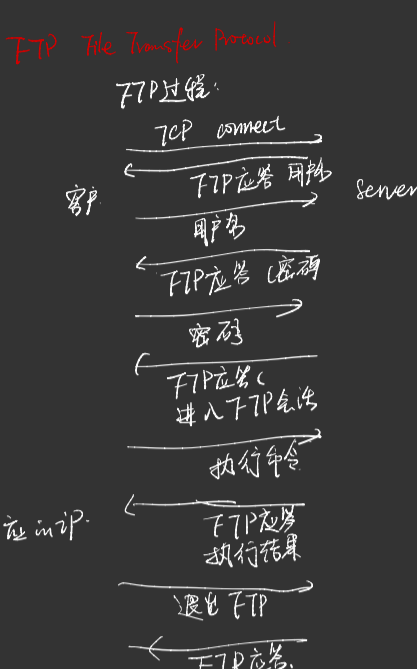 FTP File Transfer Protocol
FTP过程:
TCP connect
FTP应答 用户名
客户
server
用户名
FTP应答 (密码
密码
FTP应答(
进入FTP会话
执行命令
FTP应答
执行结果
退出 FTP
FTP应答.